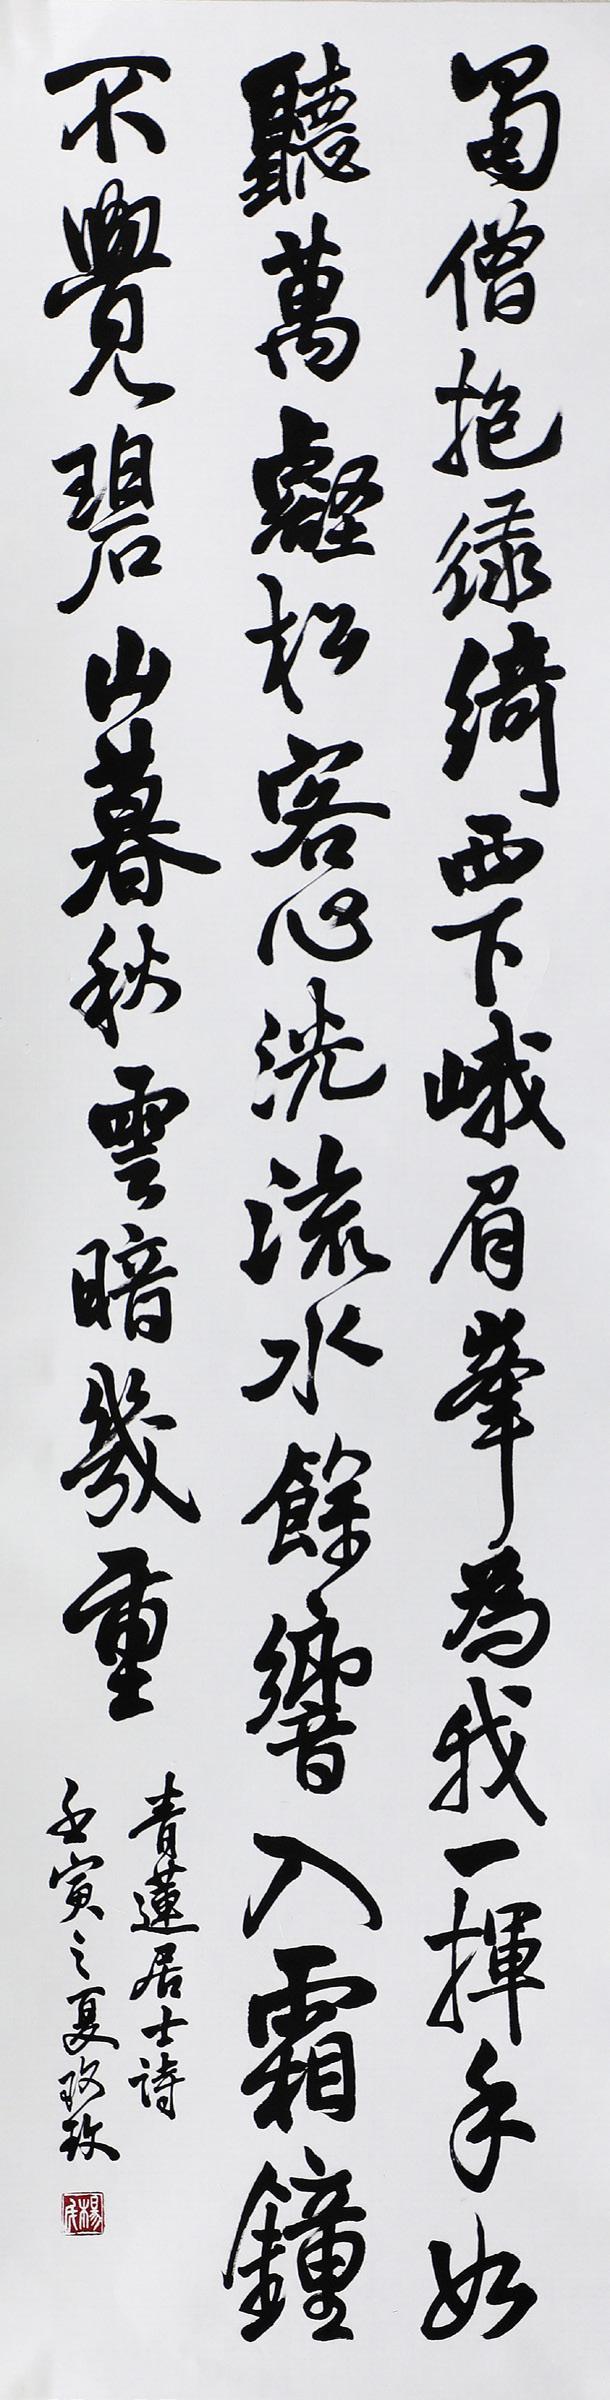 蜀僧抱绿綺西下峨眉峯為我一揮手如
聽萬壑松客心洗流水餘響入霜鐘
不覺碧山暮秋雲暗幾重
青蓮居士詩
壬寅之夏玫玫